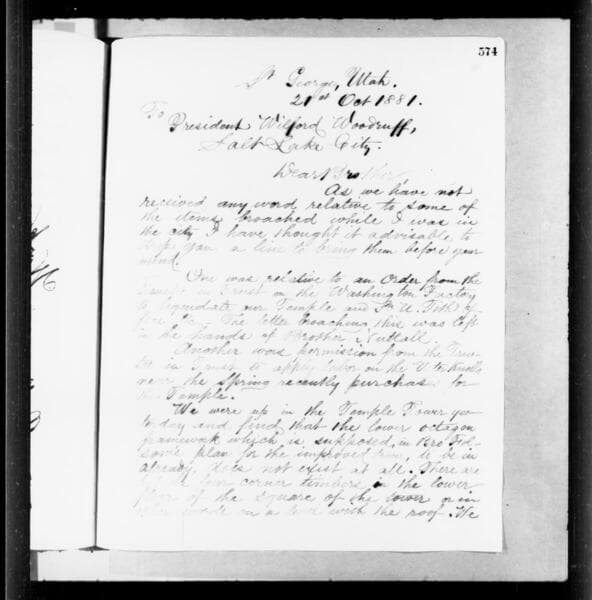 574
St George, Utah.
21st Oct 1881.
To
President Wilford Woodruff,
Salt Lake City.
Dear Brother,
As we have not
received any word relative to some of
the items broached while I was in
the city I have thought it advisable to
drop you a line to bring them before your
mind.
One was relative to an order from the
Trustee in Trust on the Washington Factory
to liquidate our Temple and
The letter broaching this was left
in the hands of Brother Nuttall.
Another was permission from the Trus-
tee in Trust to apply labor on the
near the Spring recently purchas for
the Temple.
We were up in the Temple Tower yes-
terday and find that the lower octagon
framework which is supposed, in Bro Fol-
soms plan for the improved to be in
already, does not exist at all. There are
but the four corner timbers in the lower
floor of the square of the tower or in
other words in a line with the roof. We